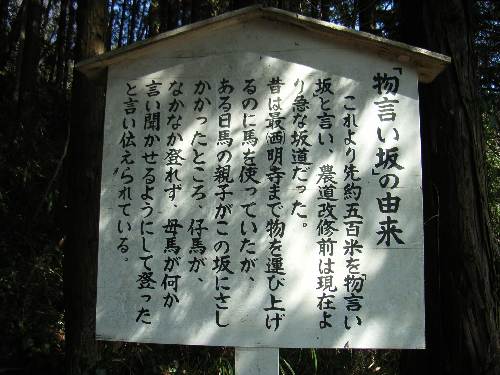 「物言い坂」の由来
これより先約五百米を「物言い
坂」と言い、農道改修前は現在よ
り急な坂道だった。
昔は最明寺まで物を運び上げ
るのに馬を使っていたが、
ある日馬の親子がこの坂にさし
かかったところ、仔馬が、
なかなか登れず、母馬が何か
言い聞かせるようにして登った
と言い伝えられている。